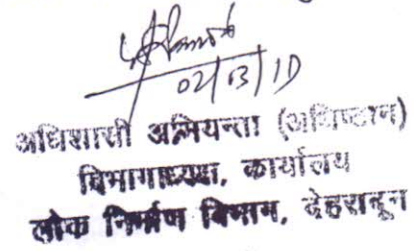 02/03/10
अधिशासी अभियन्ता (अधिष्ठान)
विभागाध्यक्ष, कार्यालय
लोक निर्माण विभाग, देहरादून